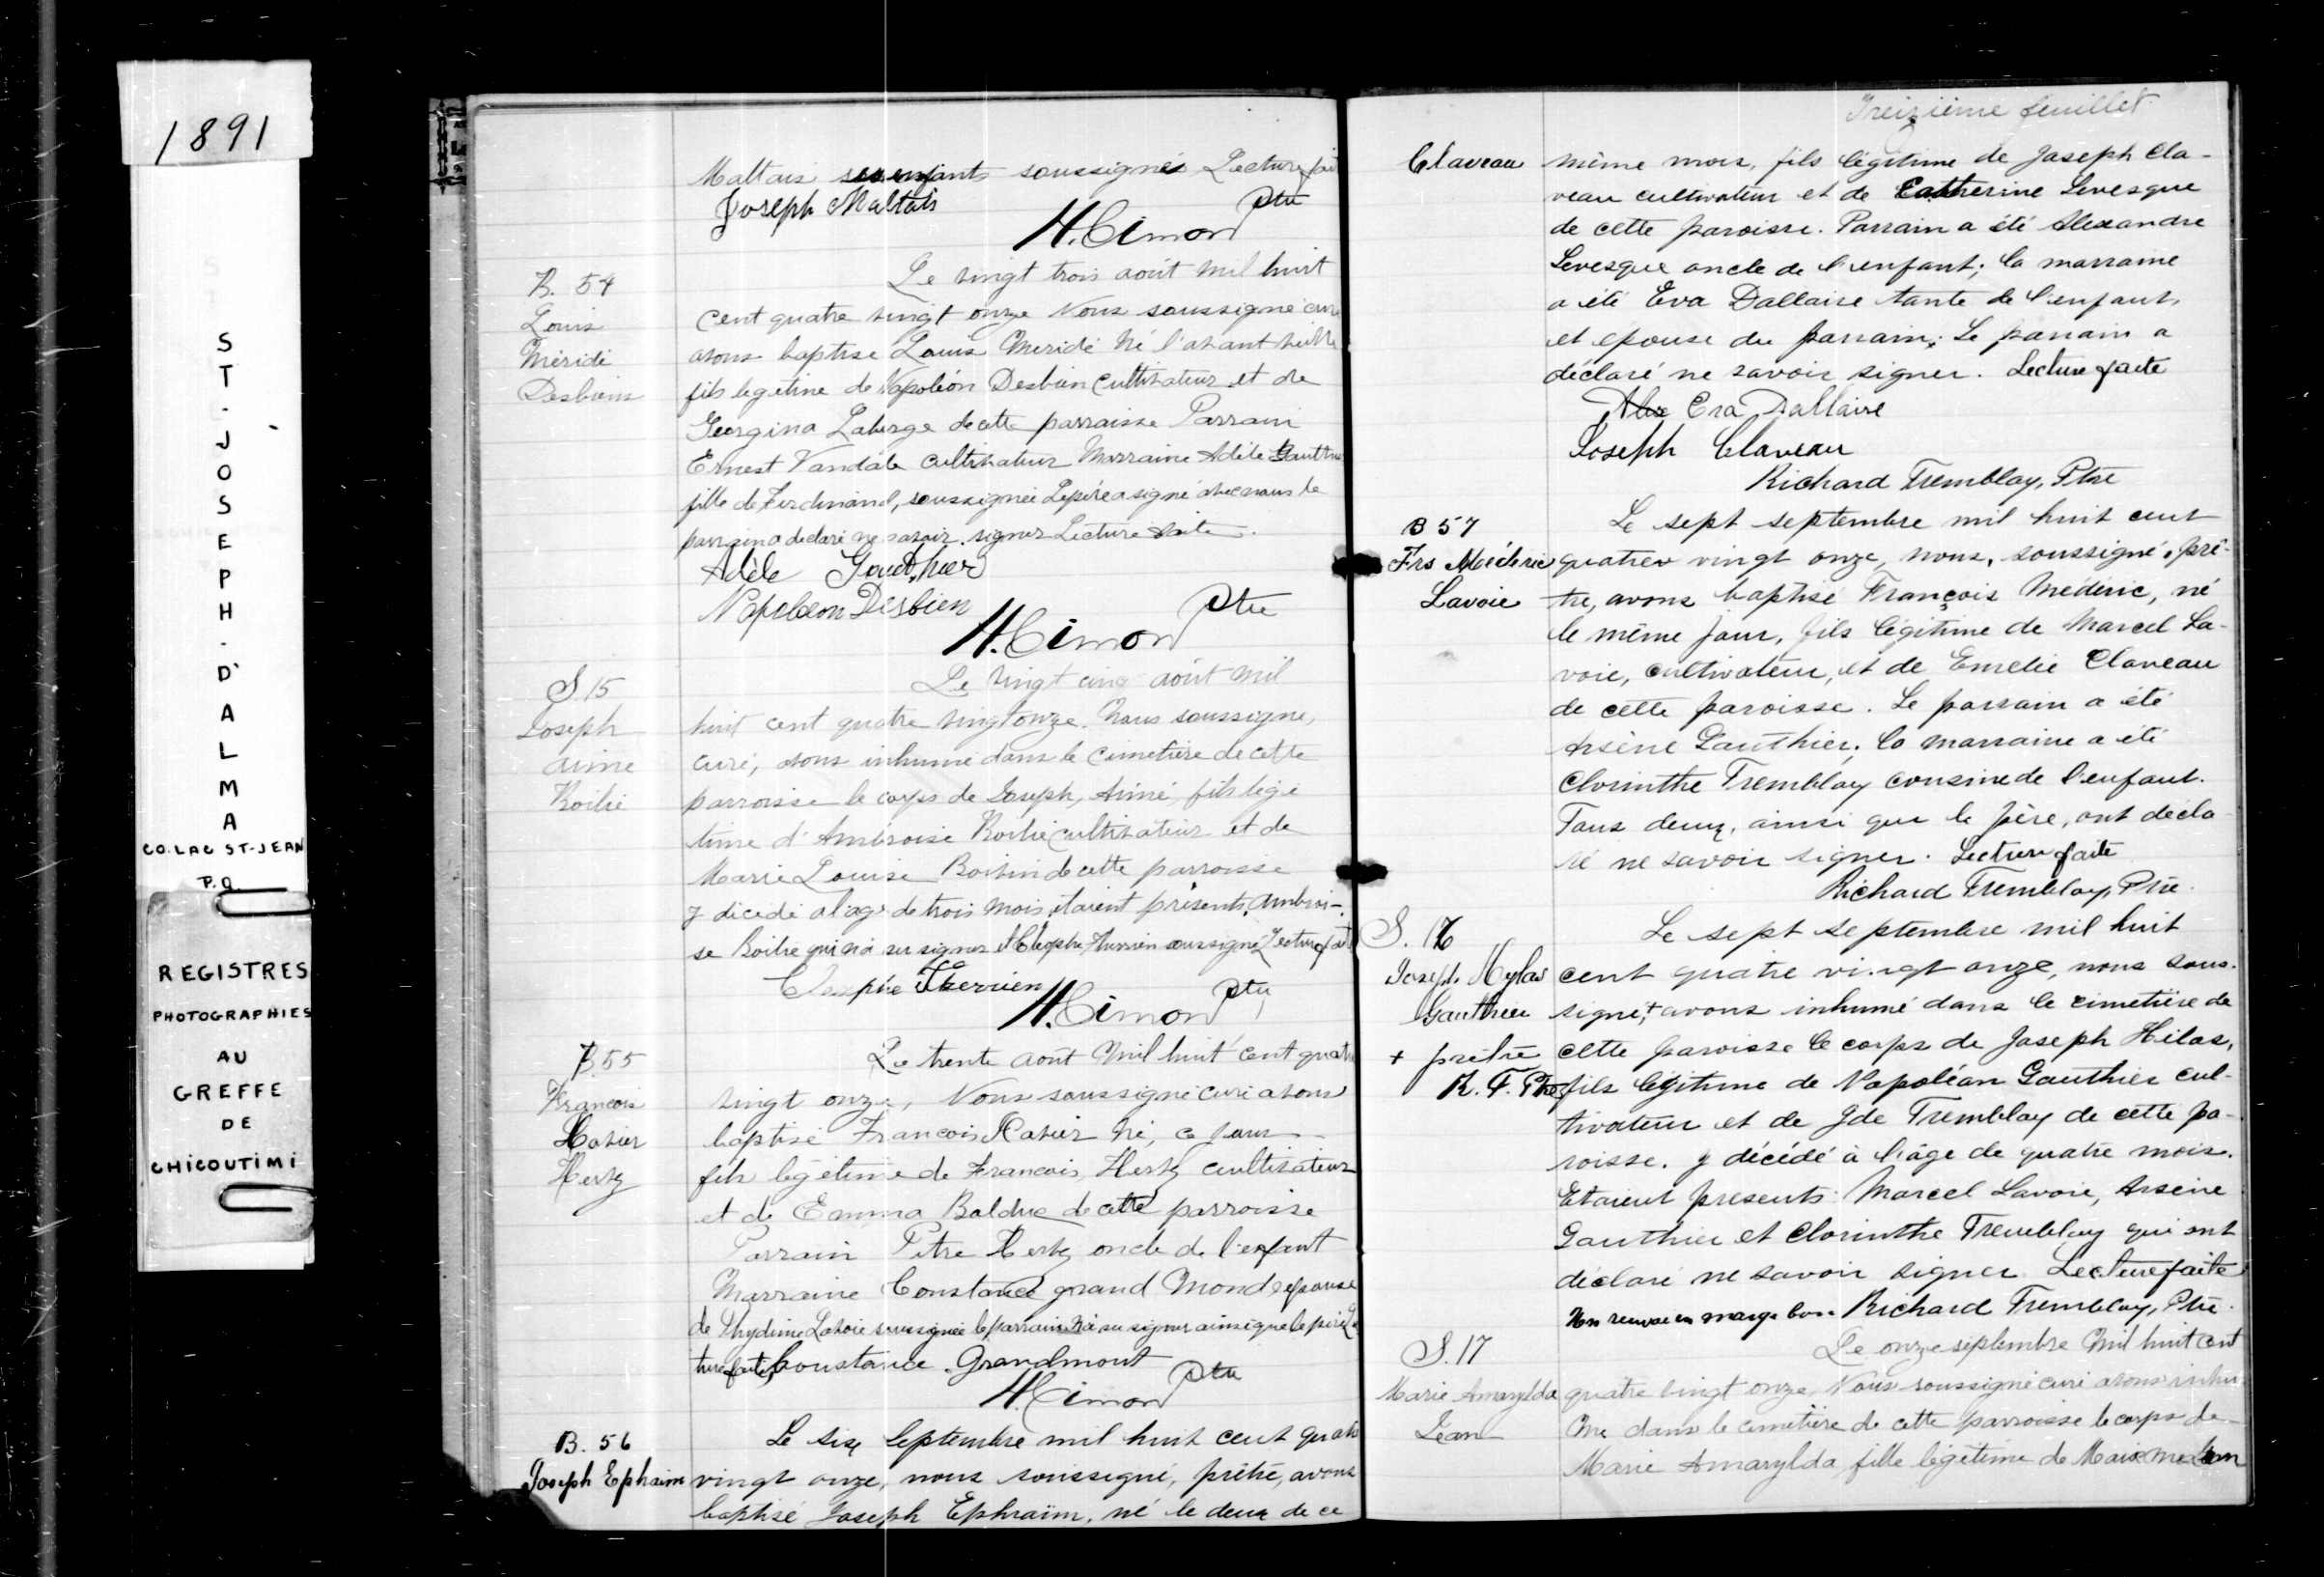 1891
ST-JOSEPH-D'ALMA
CO. LAC ST-JEAN
P.Q.
REGISTRES
PHOTOGRAPHIES
AU
GREFFE
DE
CHICOUTIMI
Maltais ses enfants soussignés Lecture fai
Joseph Maltais
H. Cimon Ptre
B. 54
Louis
Méridé
Desbiens
Le vingt trois août mil huit
cent quatre vingt onze Nous soussigné curé
avons baptisé Louis Meridé né l'avant veille
fils legetime de Napoléon Desbien cultivateur et de
Georgina Laberge de cette parraisse Parrain
Ernest Vandale cultivateur Marraine Adèle Gauthier
fille de Ferdinand, soussignée Le père a signé avec nous le
parrain a declaré ne savoir signer Lecture faite.
Adèle Gauthier
Napoleon Desbien
H. Cimon Ptre
S. 15
Joseph
aimé
Boilié
Le vingt cinq août mil
huit cent quatre vingt onze. Nous soussigné,
curé, avons inhumé dans le cimetière de cette
parroisse le corps de Joseph, Aimé, fils légi
time d'Ambroise cultivateur et de
Marie Louise Boivin de cette parroisse
y décédé a l'age de trois mois, étaient présents, Ambroi-
se qui n'a su signer soussigné Lecture fait
Cleophe Therrien
H. Cimon Ptre
B. 55
François
Xavier
Hertz
Le trente août Mil huit cent quatre
vingt onze, Nous soussigné curé avons
baptisé François Xavier né, ce jour
fils légétime de François Hertz cultivateur
et de Emma Balduc de cette parroisse
Parrain Pitre Hertz oncle de l'enfant
Marraine Constance grand Mond epouse
de Thydime Lavoie soussignée le parrain n'a su signer ainsi que le père Le
ture faite Constance Grandmont
H. Cimon Ptre
B. 56
Joseph Ephraim
Le six Septembre mil huit cent quatre
vingt onze, nous soussigné, prêtre, avons
baptisé Joseph Ephraïm, né le deux de ce
Treizième feuillet
Claveau
même mois, fils légitime de Joseph Cla-
veau cultivateur et de Catherine Levesque
de cette paroisse. Parrain a été Alexandre
Levesque oncle de l'enfant; la marraine
a été Eva Dallaire tante de l'enfant,
et epouse du parrain; Le parrain a
déclaré ne savoir signer. Lecture faite
Alex Eva Dallaire
Joseph Claveau
Richard Tremblay, Ptre
B 57
Frs Médéric
Lavoie
Le sept septembre mil huit cent
quatre vingt onze, nous, soussigné, prê-
tre, avons baptisé François Médéric, né
le même jour, fils légitime de Marcel La-
voie, cultivateur, et de Emelie Claveau
de cette paroisse. Le parrain a été
Arsène Gauthier; la marraine a été
Clorinthe Tremblay cousine de l'enfant.
Tous deux, ainsi que le père, ont décla
ré ne savoir signer. Lecture faite
Richard Tremblay, Ptre.
S. 16
Joseph Hylas
Gauthier
+ prêtre
R. T. Ptre
Le sept septembre mil huit
cent quatre vingt onze, nous sous-
signé,+ avons inhumé dans le cimetière de
cette paroisse le corps de Joseph Hilas,
fils légitime de Napoléon Gauthier cul-
tivateur et de Ide Tremblay de cette pa-
roisse. y décédé à l'âge de quatre mois.
Etaient présents: Marcel Lavoie, Arsène
Gauthier et Clorinthe Tremblay qui ont
déclaré ne savoir signer. Lecture faite
Un renvoi en marge bon. Richard Tremblay, Ptre.
S. 17
Marie Amarylda
Jean
Le onze septembre Mil huit cent
quatre vingt onze, Nous soussigné curé avons inhu
mé dans le cimetière de cette parroisse le corps de
Marie Amarylda fille légétime de Maxime Jean